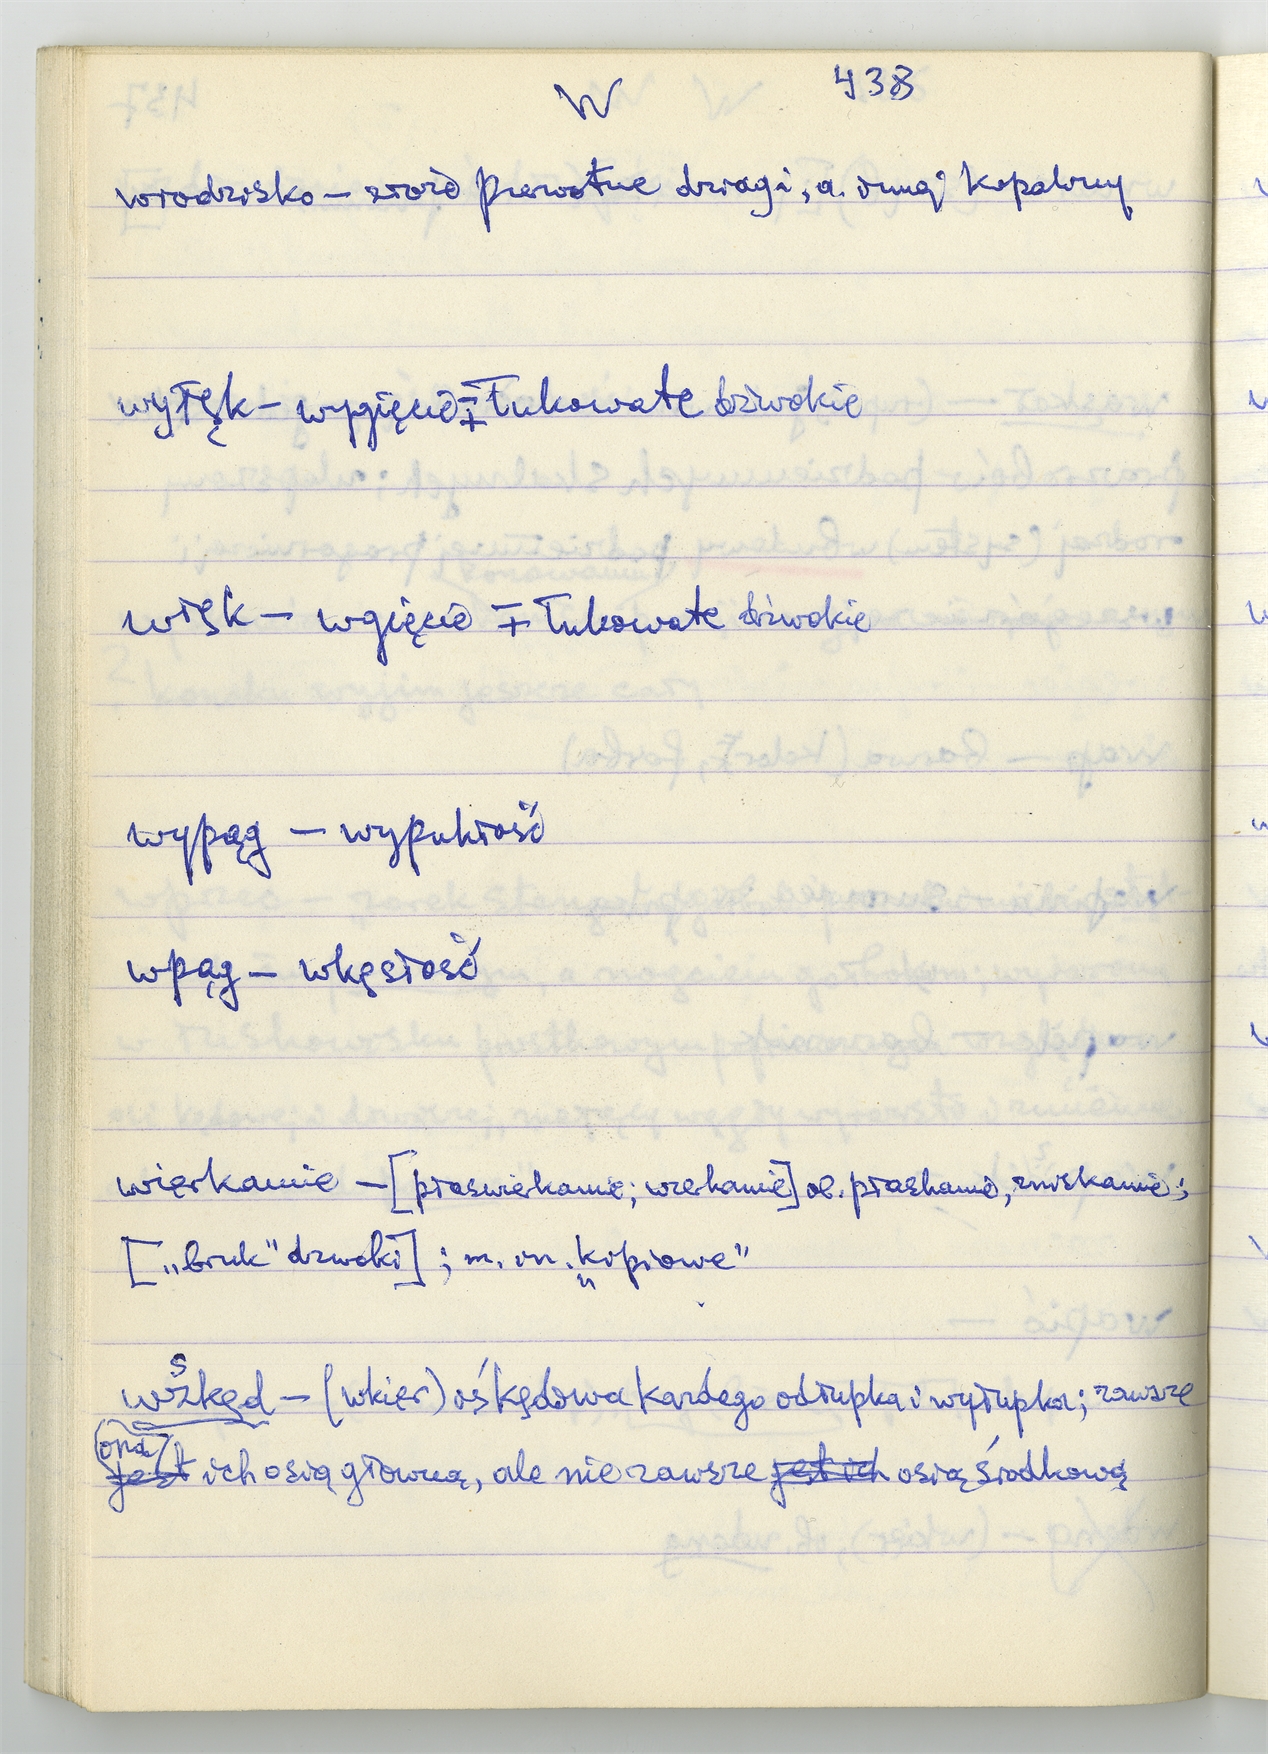 W 438
wrodzisko – złoże pierwotne dziagi, a. innej kopaliny
wyłęk – wygięcie ∓ łukowate dźwokie
włęk – wgięcie ∓ łukowate dźwokie
wypąg – wypukłość
wpąg – wkęsłość
wierkanie – [ptaswierkanie; wierkanie] ob. ptaskanie,
["bruk" dzwoki]; m. in. "kopiowe"
wżkęd – (wkier) oś kędowa każdego odłupka i wyłupka; zawsze
(ona) jest ich osią główną, ale nie zawsze jest ich osią środkową